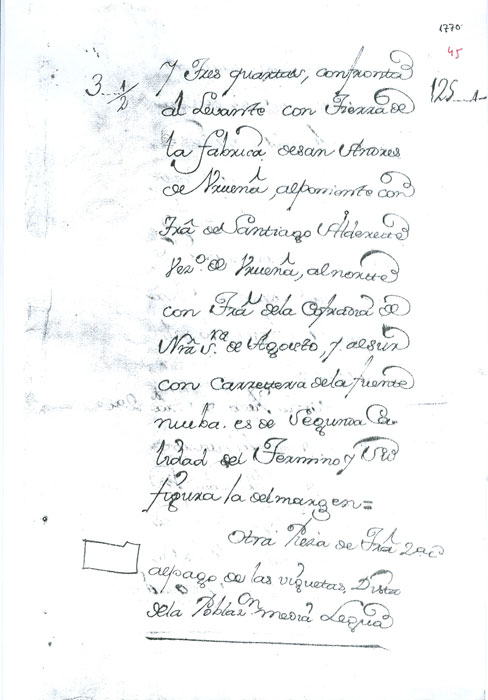 1770
45
3 1/2
125
Y Tres quartas, confronta
al Levante con Tierra de
la fabrica de san Andres
de Viruena, al poniente con
Trā de Santiago Alderete
Vezº de Viruena, al norte
con Trā de la Cofradia de
Nrā Srª de Agosto, y al sur
con Carretera de la fuente
nueba. es de Segunda Ca
lidad del Termino y Su
figura la del margen =
Otra Pieza de Trā
al pago de las viguetas, Dista
de la Poblazon media Legua